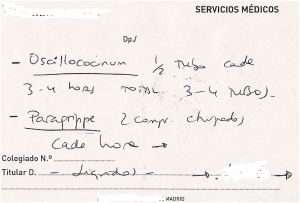 SERVICIOS MÉDICOS
Dp./
- Oscillococinum 1/2 tubo cada
3-4 horas TOTAL 3-4 TUBOS.
- Paragrippe 2 comp. chupados
Cada hora →
Colegiado N.º
Titular D.
MADRID